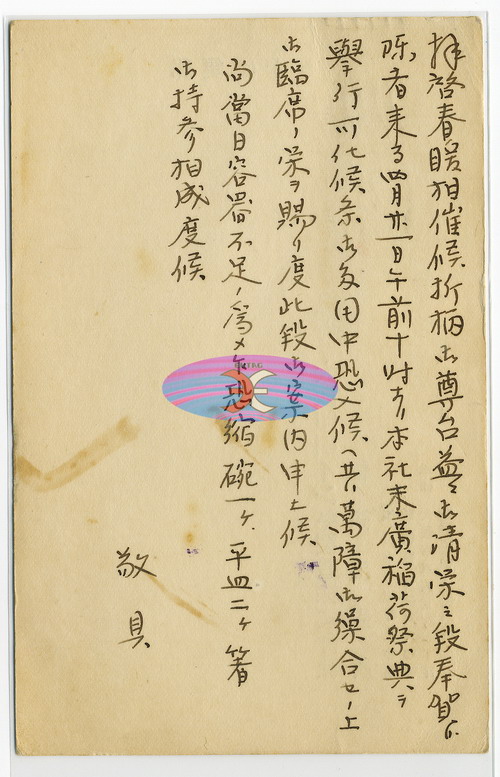 拝啓春暖相催候折柄御尊台益々御清栄之段奉賀候
陳者来る四月廿一日午前十時ヨリ本社末廣稲荷祭典ヲ
擧行可仕候条御多用中恐入候ヘ共萬障御繰合セノ上
御臨席ノ栄ヲ賜リ度此段御案内申上候
尚當日容器不足ノ為メ乍恐縮碗一ケ平皿二ケ箸
御持参相成度候
敬具